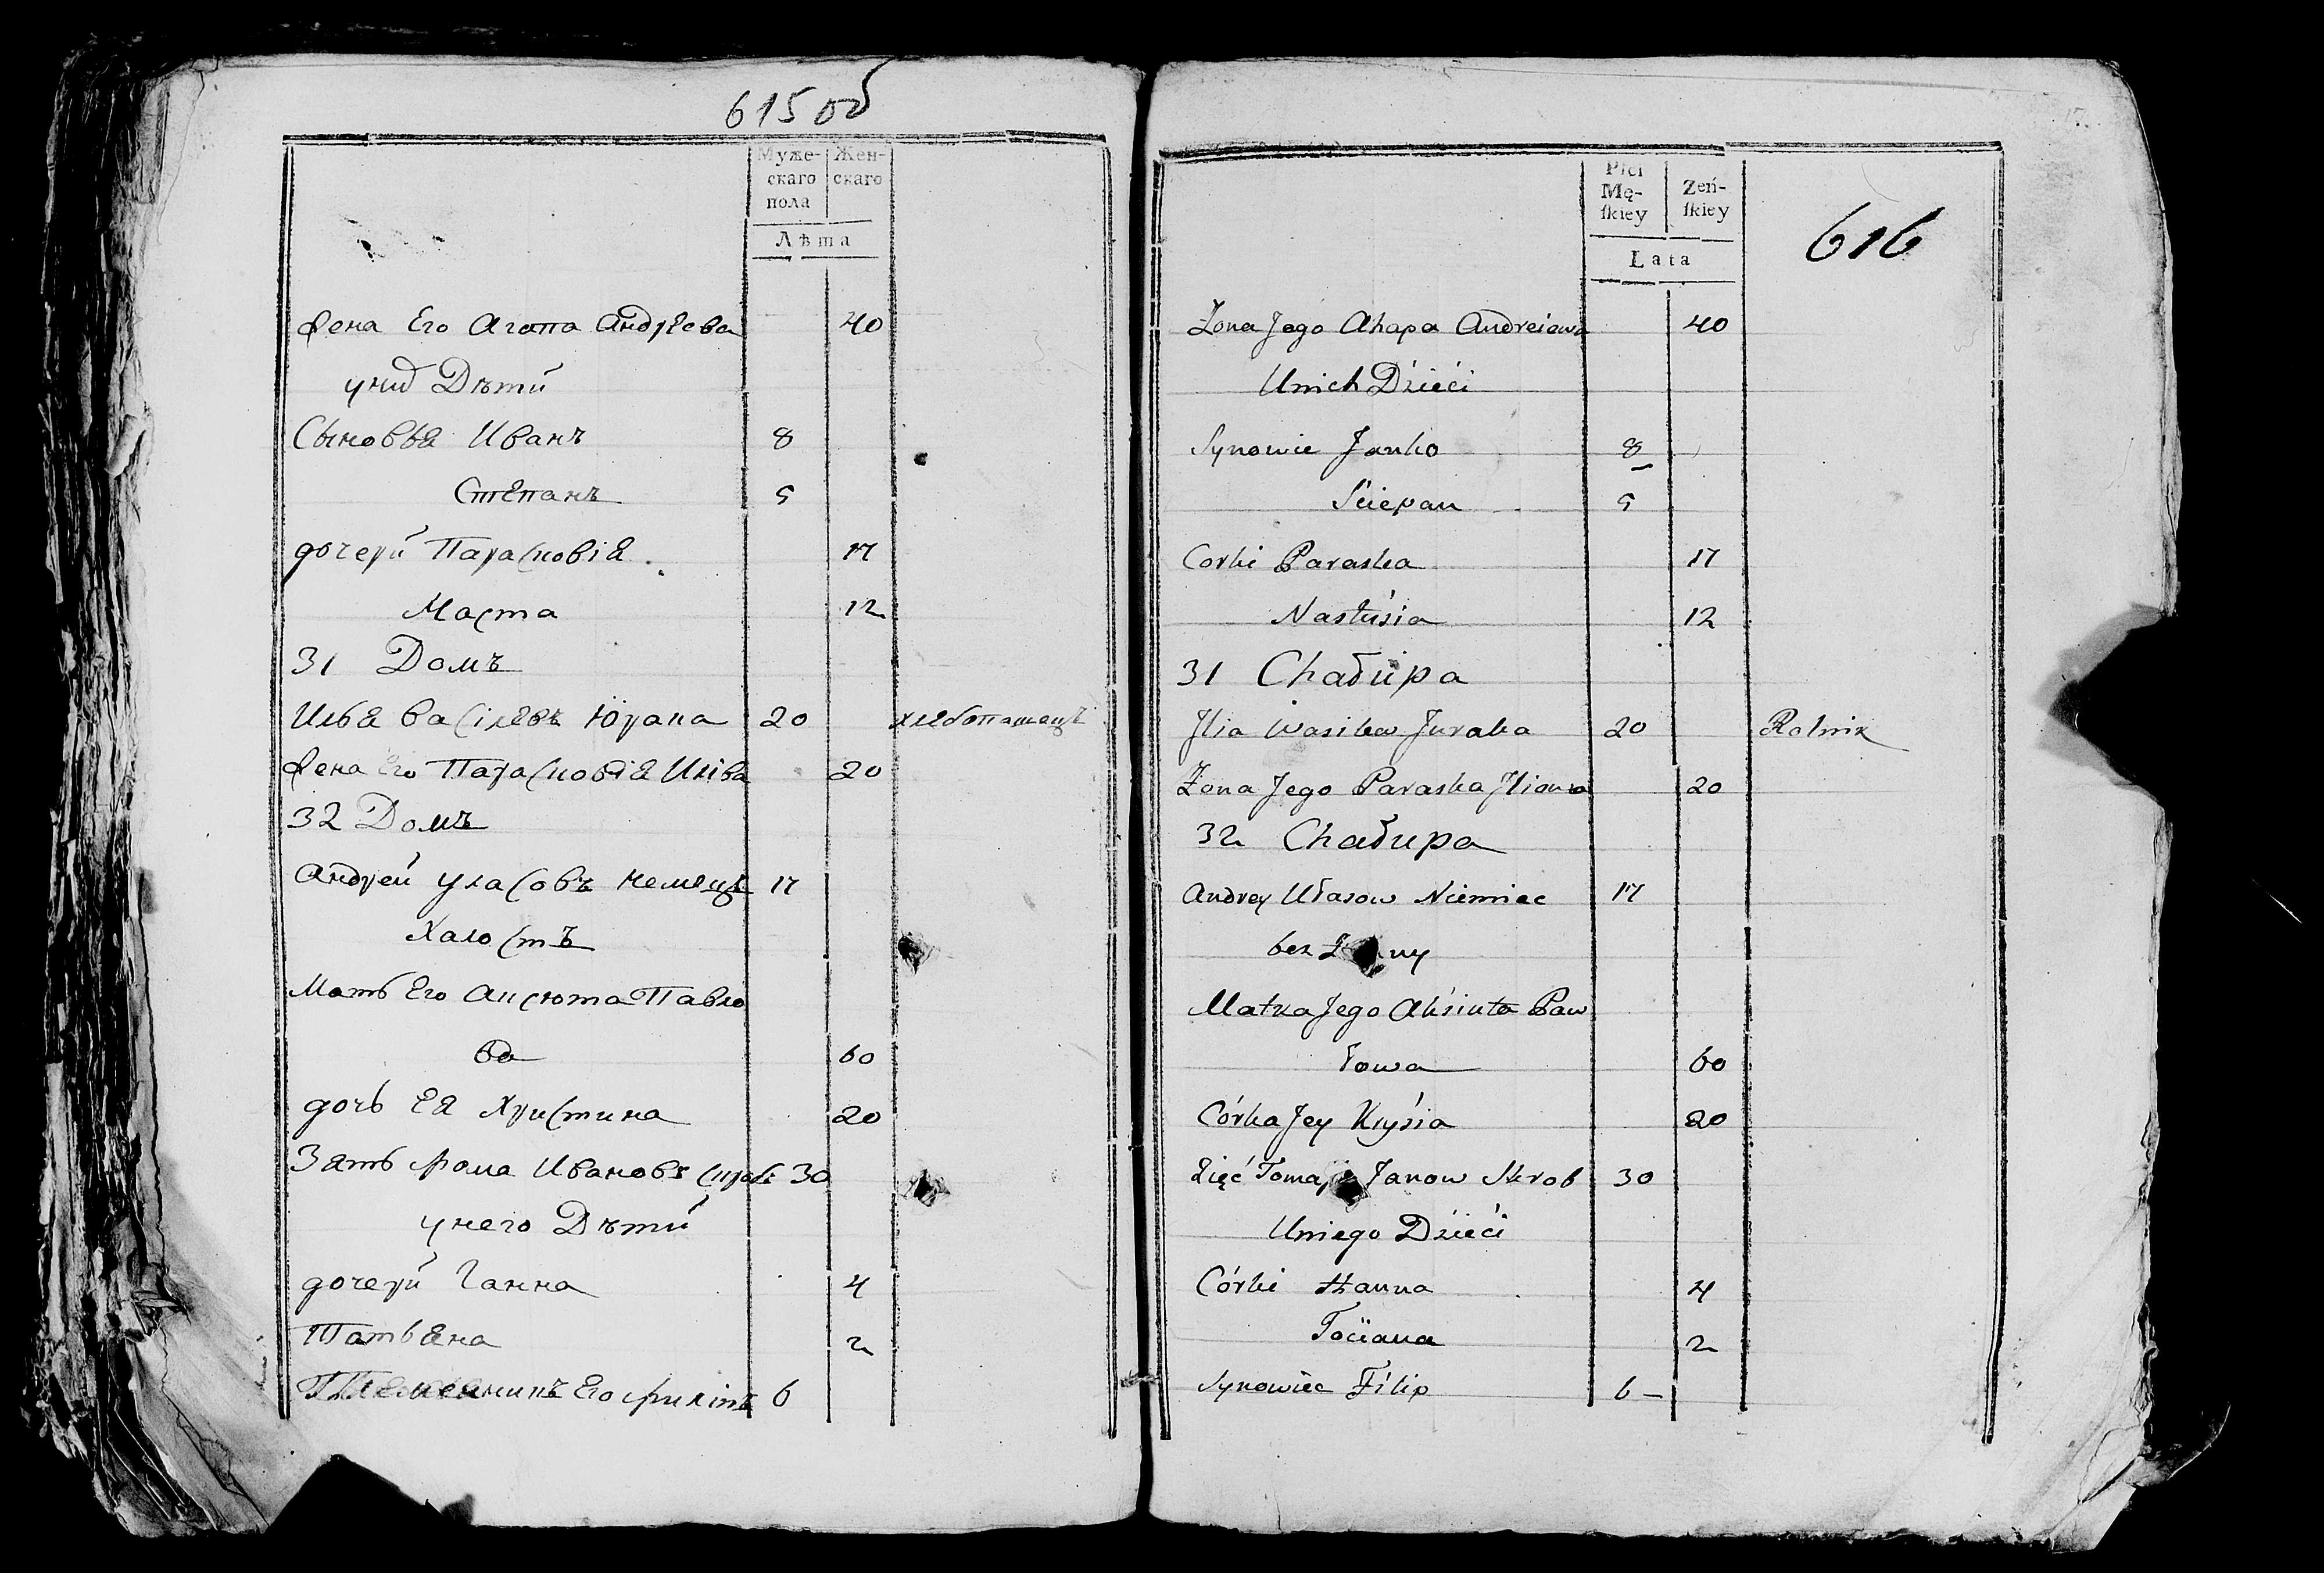 615 об
Муже-
скаго
пола
Жен-
скаго
Лѣта
Жена Его Агапа Андрѣева 40
у них Дѣти
Сыновья Иванъ 8
Степанъ 5
дочери Парасковія 17
Наста 12
31 Домъ
Илья Васілевъ Юрака 20 хлебопашецъ
Жена Его Парасковія Иліва 20
32 Домъ
Андрей Уласовъ Немецъ 17
Халостъ
Мать Его Аксюта Павло
ва 60
дочь Ея Христина 20
Зять фома Ивановъ Скробъ 30
у него Дѣти
дочери Ганна 4
Татьяна 2
Племянникъ Его филіпъ 6
Płci
Mę-
skiey
Zeń-
skiey
Lata
616
Żona Jego Ahapa Andreiowa 40
Unich Dzieći
Synowie Janko 8
Sciepan 5
Corki Paraska 17
Nastúsia 12
31 Chałupa
Jlia Wasilew Juraka 20 Rolnik
Żona Jego Paraska Jliowa 20
32 Chałupa
Andrey Ułasow Niemiec 17
bez Żony
Matka Jego Aksiuta Paw
łowa 60
Córka Jey Krysia 20
Zięć Tomasz Janow Skrob 30
Uniego Dzieći
Córki Hanna 4
Tociana 2
Synowiec Filip 6 –